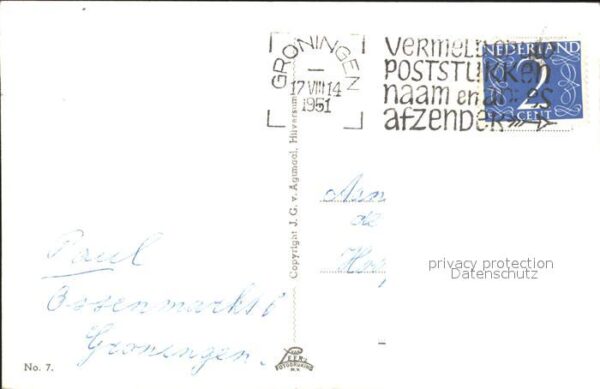 GRONINGEN
17 VIII 14
1951
VERMELD OP
POSTSTUKKEN
naam en adres
afzender
NEDERLAND
2
CENT
Copyright J. G. v. Agtmaal, Hilversum
Aan
de
privacy protection
Datenschutz
Paul
Ossenmarkt 6
Groningen.
No. 7.
FOTODRUK
N.V.